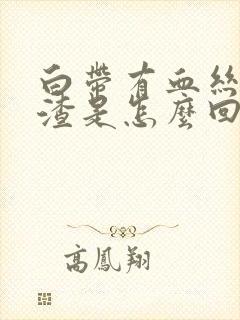 白帶有血絲
渣是怎麼回
高鳳翔